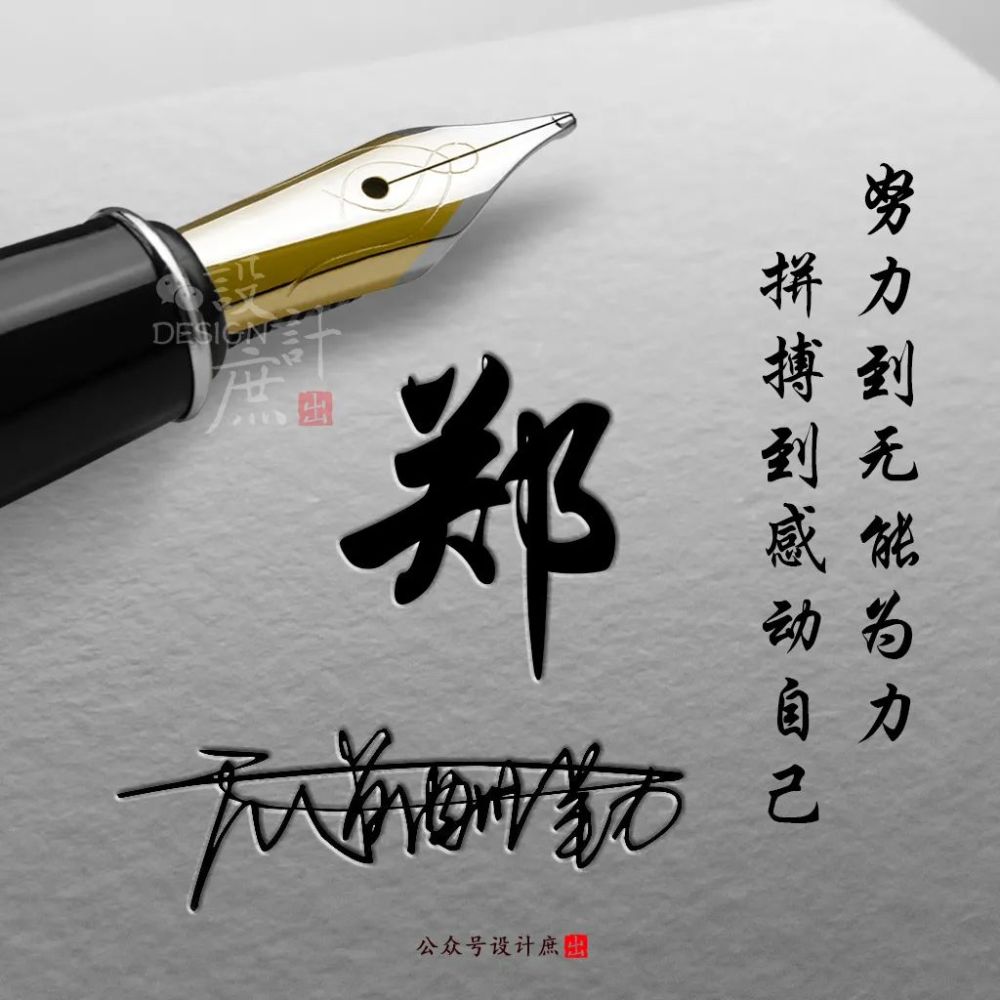 設計
DESIGN
庶出
努力到无能为力
拼搏到感动自己
郑
天道酬勤
公众号设计庶出